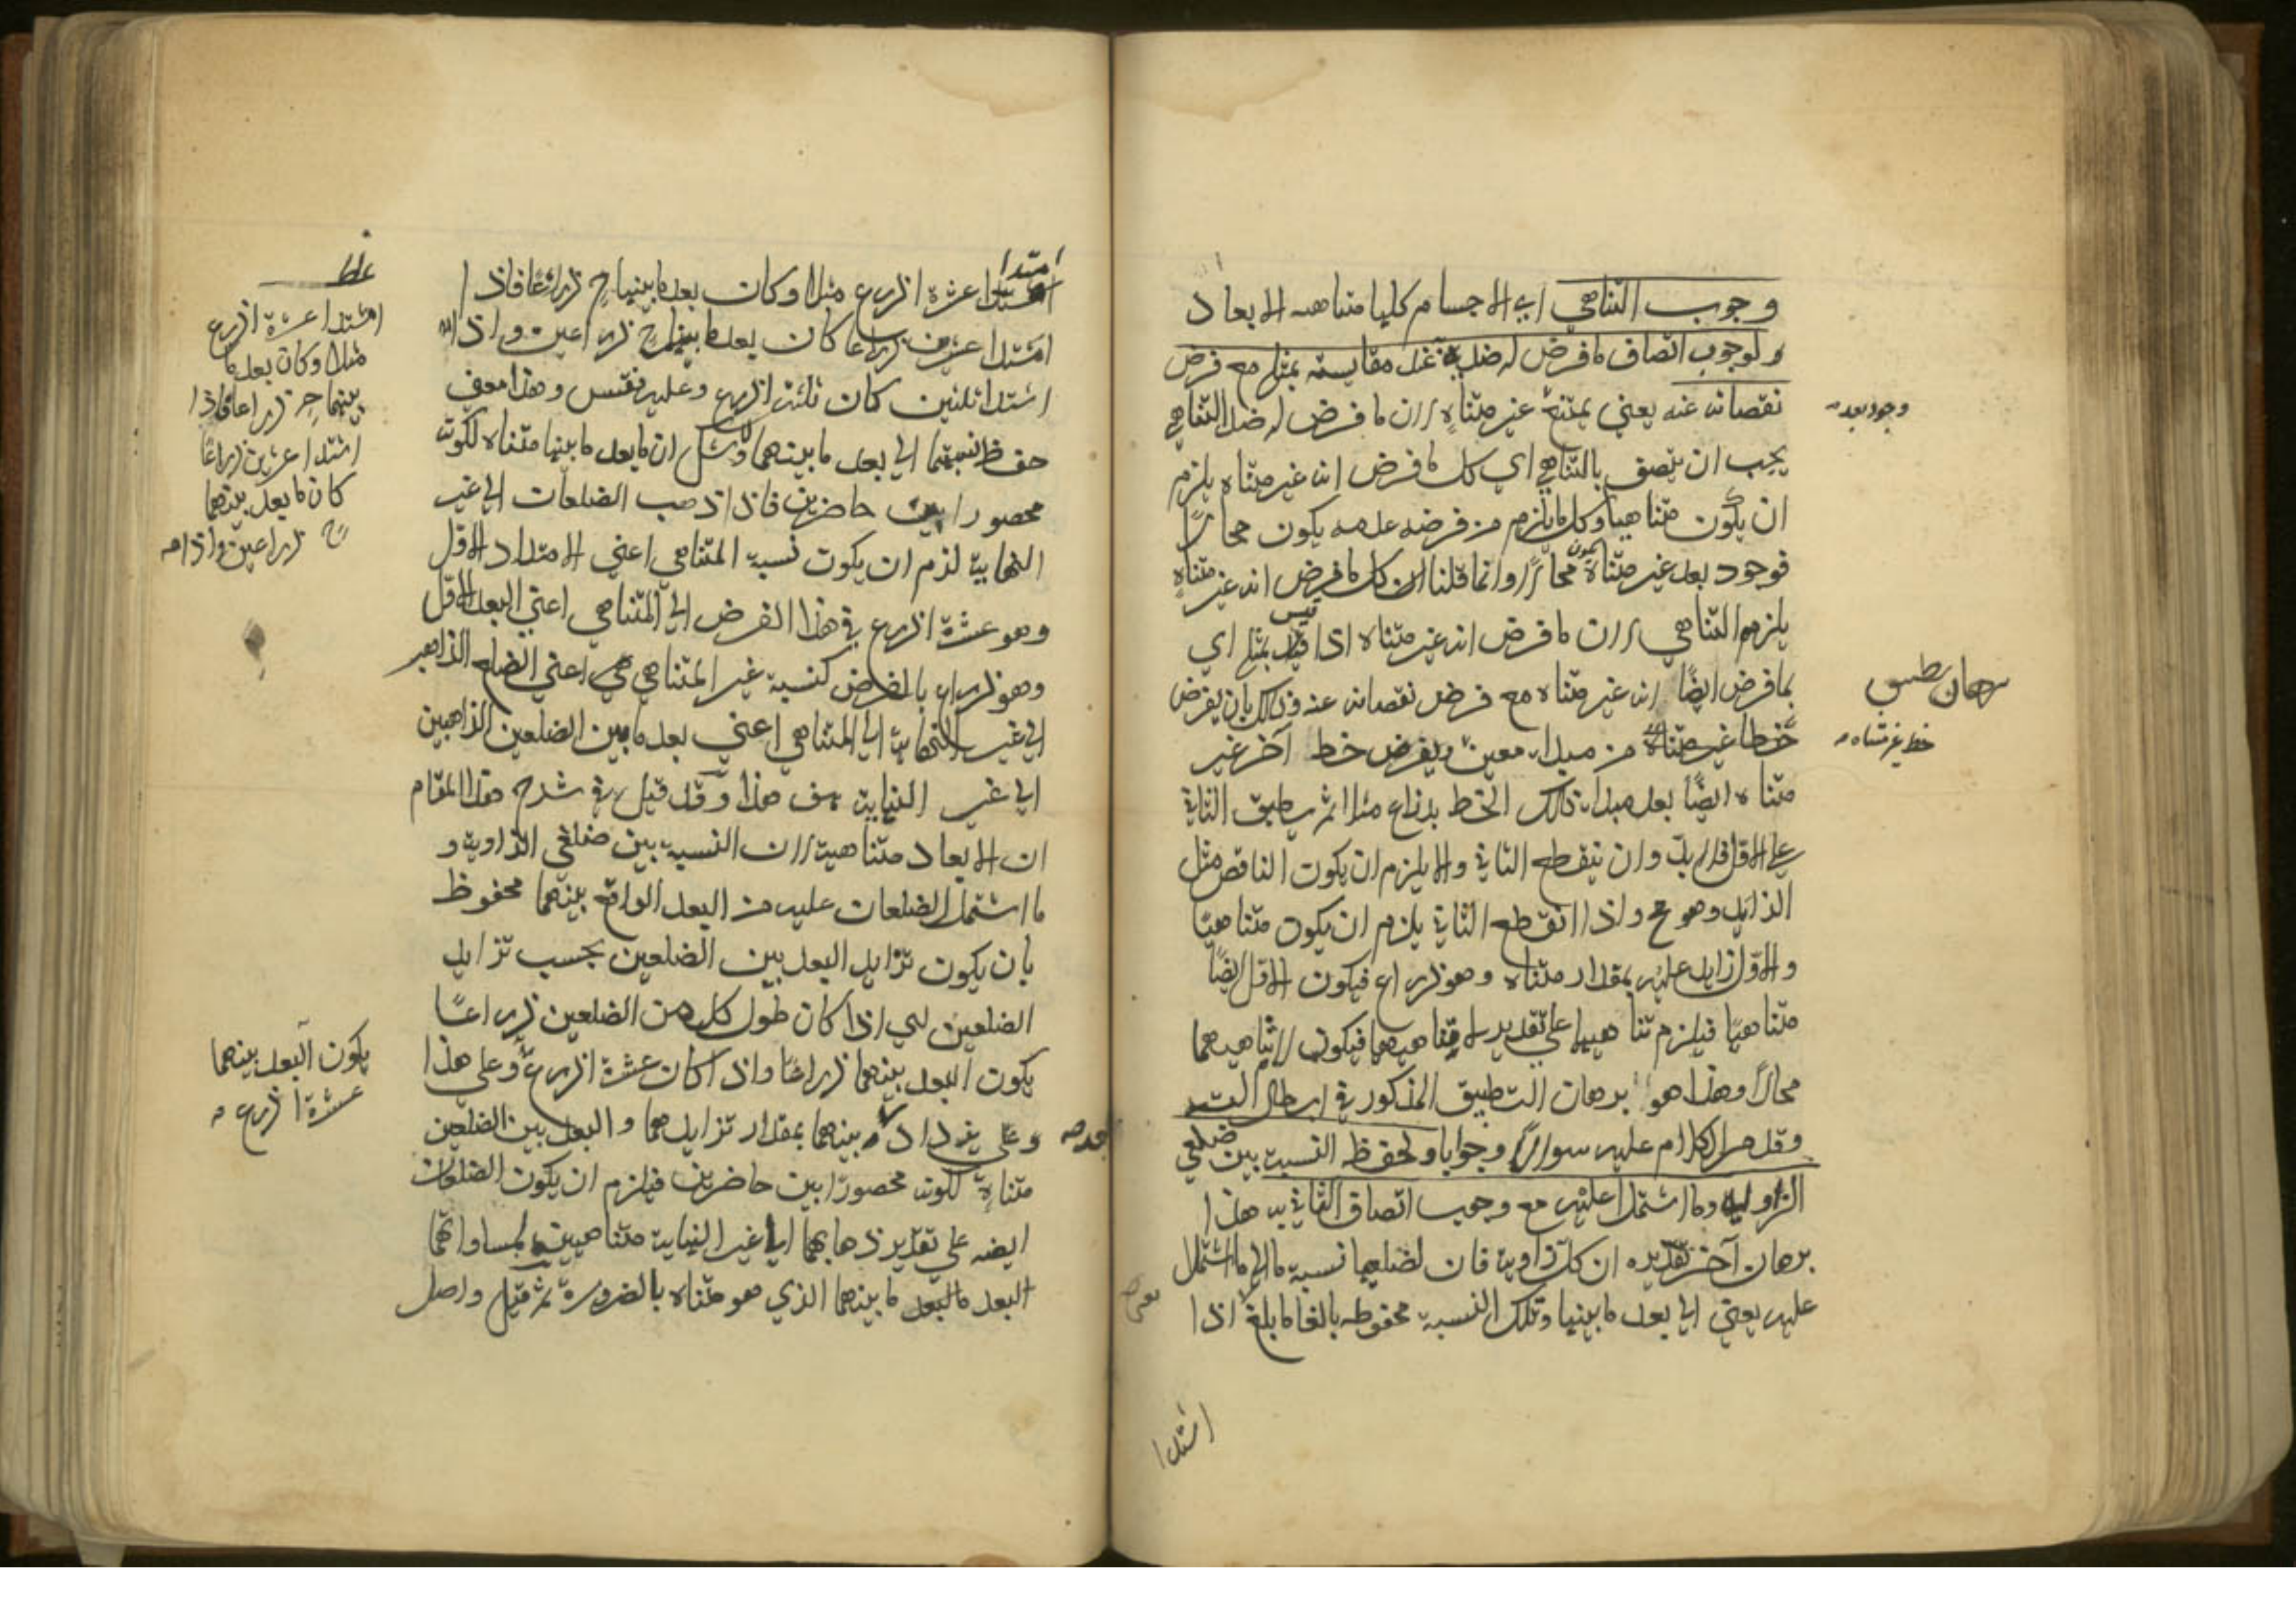 وجوب التناهي اي الاجسام كلها متناهيه الابعاد
ولوجوب اتصاف ما فرض له ضده به عند مقايسته بمثله مع فرض
نقصانه عنه يعني يمتنع غير متناه لان ما فرض له ضد التناهي
وجود بعد صه
يجب ان يتصف بالتناهي اي كل ما فرض انه غير متناه يلزم
ان يكون متناهيا وكل ما يلزم من فرضه عدمه يكون محالا
فوجود بعد غير متناه يكون محالا وانما قلنا ان كل ما فرض انه غير متناه
يلزم التناهي لان ما فرض انه غير متناه اذا قيس بمثله اي
بما فرض ايضا انه غير متناه مع فرض نقصانه عنه وذلك بان يفرض
برهان تطبيق
خطا غير متناه من مبداء معين ويفرض خط آخر غير
خط غير متناه صه
متناه ايضا بعد مبداء ذلك الخط بذراع مثلا ثم يطبق الثاني
على الاول فلابد وان ينقطع الثاني والا يلزم ان يكون الناقص مثل
الزايد وهو مح واذا انقطع الثاني يلزم ان يكون متناهيا
والاول زايد عليه بمقدار متناه وهو ذراع فيكون الاول ايضا
متناهيا فيلزم تناهيهما على تقدير لا تناهيهما فيكون لا تناهيهما
محالا وهذا هو برهان التطبيق المذكور في ابطال التسـ
وقد مر الكلام عليه سوالا وجوابا ولحفظ النسبة بين ضلعي
الزاوية وما اشتملا عليه مع وجوب اتصاف الثاني به هذا
برهان آخر تقديره ان كل زاوية فان لضلعيها نسبة ما الى ما اشتملا
عليه يعني الى بعد ما بينهما وتلك النسبة محفوظه بالغا ما بلغ اذا
امتدا
امتدا
امتدا عشرة اذرع مثلا وكان بعد ما بينهما ح ذراعا فاذا
امتدا عشرين ذراعا كان بعد ما بينهما ح ذراعين واذا
امتدا ثلثين كان ثلثة اذرع وعليه فقس وهذا معنى
حفظ نسبتهما الى بعد ما بينهما ولا شك ان ما بعد ما بينهما متناه لكونه
محصورا بين حاضرين فاذا ذهب الضلعان الى غير
النهاية لزم ان يكون نسبة المتناهي اعني الامتداد الاول
وهو عشرة اذرع في هذا الفرض الى المتناهي اعني البعد الاول
وهو ذراع بالفرض كنسبة غير المتناهي اعني الضلع الذاهب
الى غير النهاية الى المتناهي اعني بعد ما بين الضلعين الذاهبين
الى غير النهاية هف هذا وقد قيل في شرح هذا المقام
ان الابعاد متناهية لان النسبة بين ضلعي الزاوية و
ما اشتمل الضلعان عليه من البعد الواقع بينهما محفوظ
بان يكون تزايد البعد بين الضلعين بحسب تزايد
الضلعين اي اذا كان طول كل من الضلعين ذراعا
يكون البعد بينهما ذراعا واذا كان عشرة اذرع وعلى هذا
يزداد بينهما بمقدار تزايدهما والبعد بين الضلعين
متناه لكونه محصورا بين حاضرين فيلزم ان يكون الضلعان
ايضه على تقدير ذهابهما الى غير النهاية متناهيين لمساواتهما
البعد ما بينهما الذي هو متناه بالضرورة ثم قيل واصل
غلط
امتدا عشرة اذرع
مثلا وكان بعد ما
بينهما ح ذراعا فاذا
امتدا عشرين ذراعا
كان ما بعد بينهما
ح ذراعين واذا صه
يكون البعد بينهما
عشرة اذرع صه